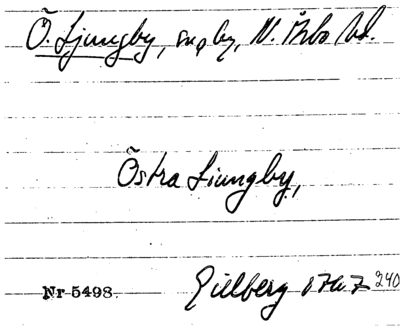 Ö. Ljungby, sn o by, N. Åsbo hd.
Östra Liungby,
Gillberg 1767 240
Nr 5498.